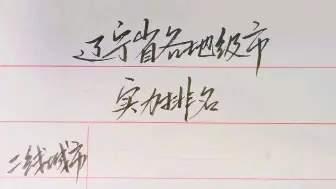 辽宁省各地级市
实力排名
二线城市